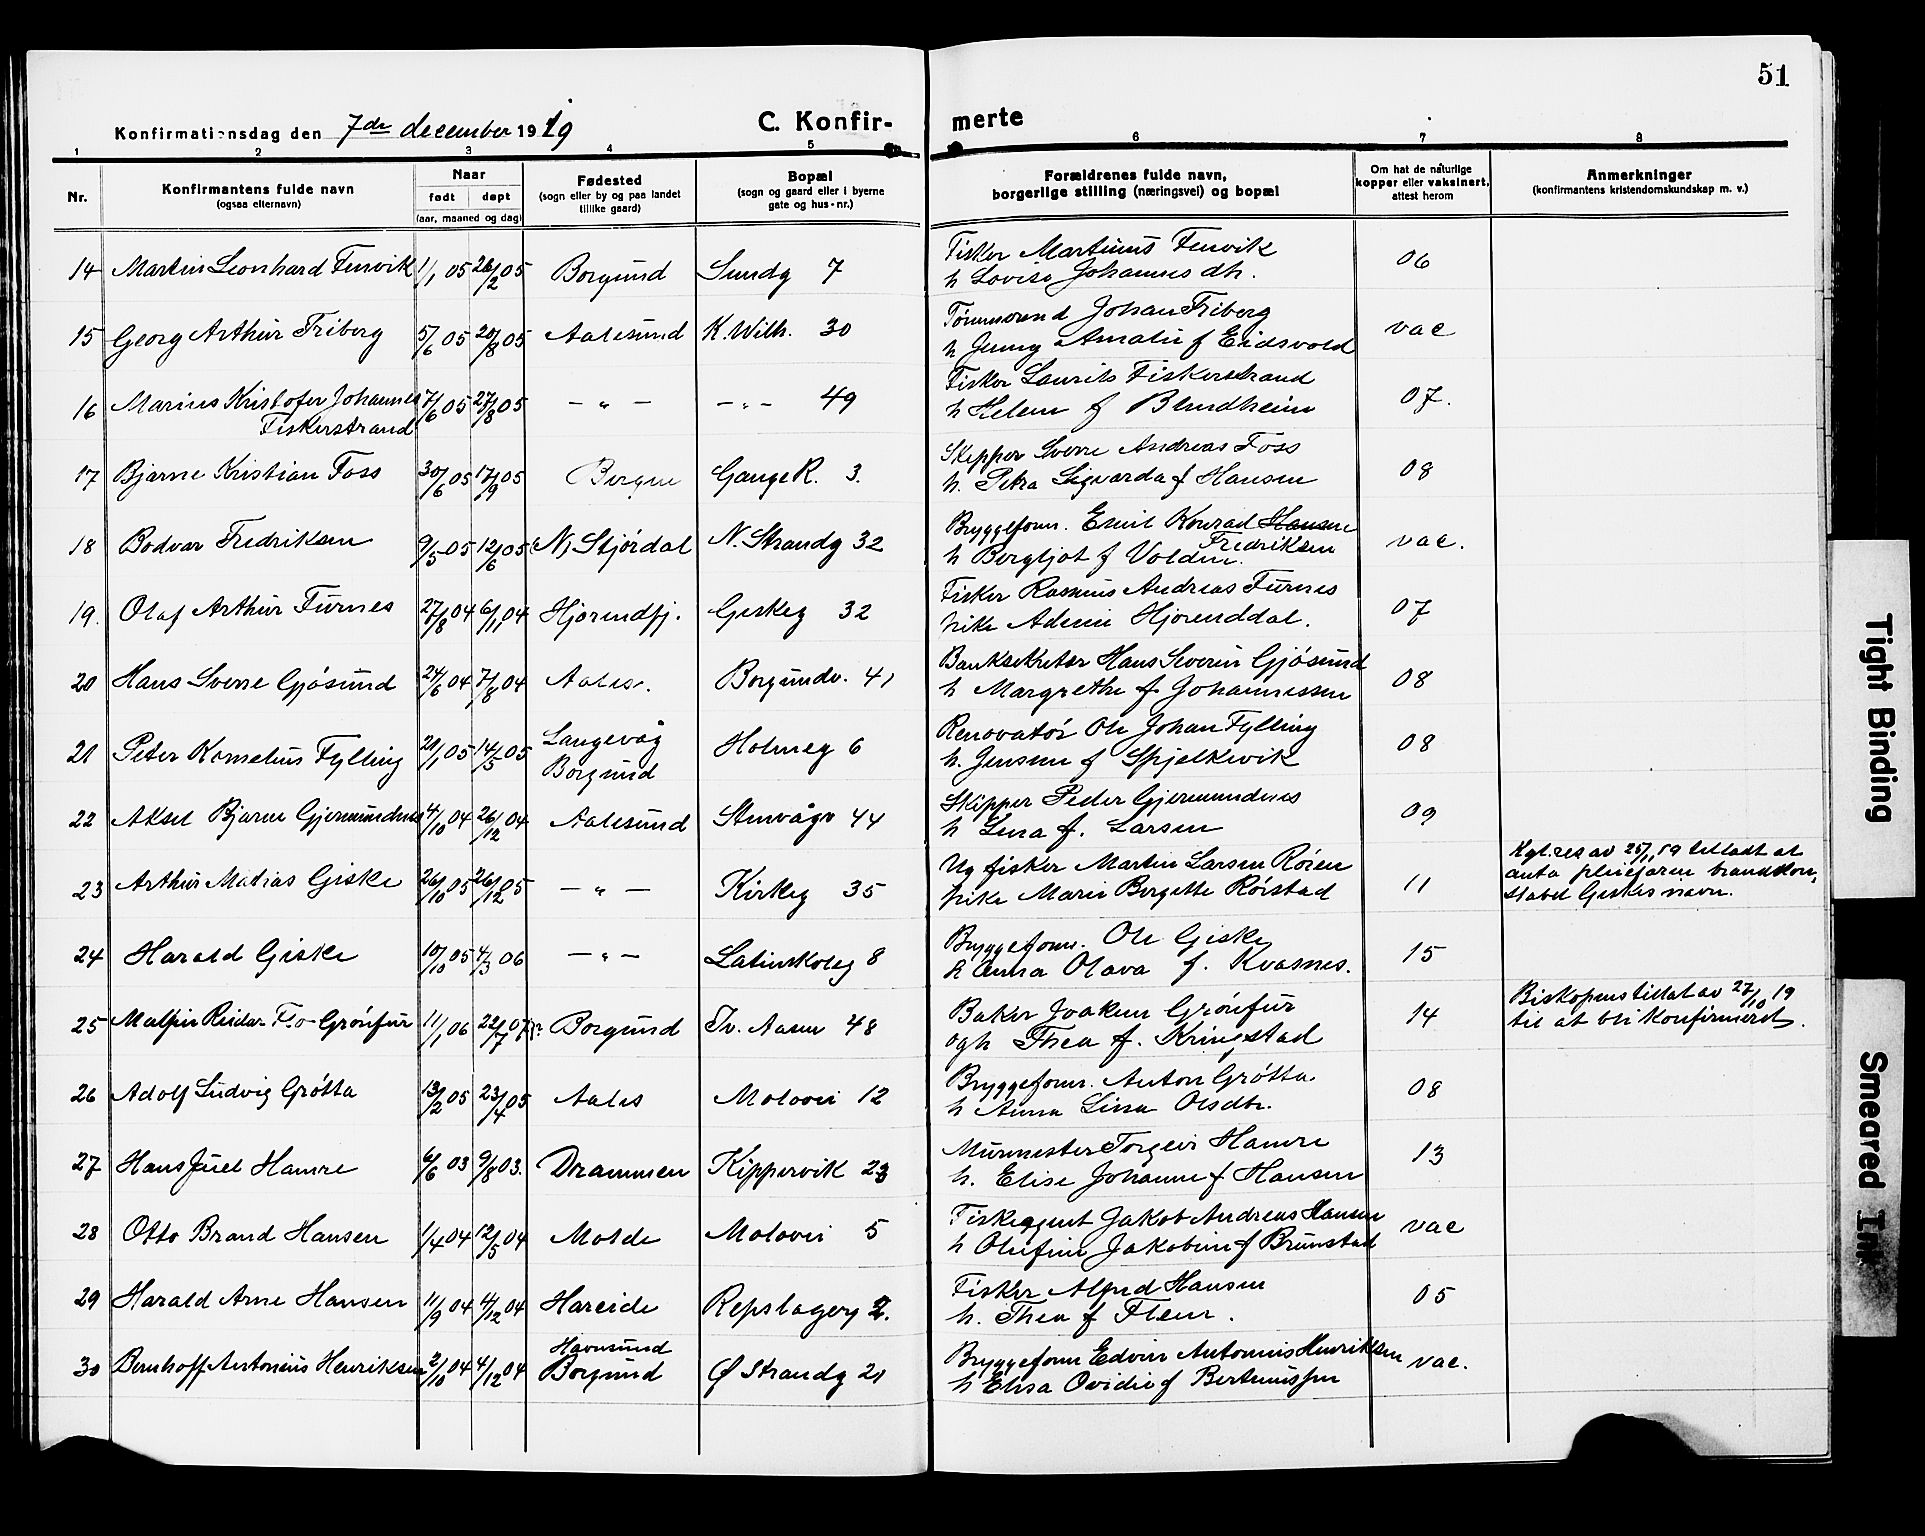 51
Konfirmationsdag den 7de december 1919 C. Konfir- merte
1 2 3 4 5 6 7 8
Nr. Konfirmantens fulde navn (ogsaa efternavn) Naar født døpt (aar, maaned og dag) Fødested (sogn eller by og paa landet tillike gaard) Bopæl (sogn og gaard eller i byerne gate og hus-nr.) Forældrenes fulde navn, borgerlige stilling (næringsvei) og bopæl Om hat de naturlige kopper eller vaksinert, attest herom Anmerkninger (konfirmantens kristendomskundskap m. v.)
14 Martin Leonhard Fenvik 1/1 05 26/2 05 Borgund Sundg 7 Fisker Martinus Fenvik 06
h Lovise Johannesdh.
15 Georg Arthur Friberg 5/6 05 20/8 05 Aalesund K. Wilh. 30 Tømmermd Johan Friberg vac
h Jenny Amalie f Eidsvold
16 Marius Kristofer Johannes 7/6 05 27/8 05 — " — — " — 49 Fisker Laurits Fiskerstrand 07.
Fiskerstrand h Helene f Blindheim
17 Bjarne Kristian Foss 30/6 05 17/9 05 Bergen Gange R. 3. Skipper Sverre Andreas Foss 08
h. Petra Sigvarda f Hansen
18 Bodvar Fredriksen 9/5 05 12/6 05 N. Stjördal N. Strandg 32 Bryggeform. Emil Konrad Hansen vac.
Fredriksen
h Bergljot f Volden.
19. Olaf Arthur Furnes 27/8 04 6/11 04 Hjörendfj. Giskeg 32 Fisker Rasmus Andreas Furnes 07
Pike Adeine Hjorenddal.
20 Hans Sverre Gjösund 24/6 04 7/8 04 Aales. Borgundv. 41 Banksekretær Hans Severin Gjösund 08
h Margrethe f Johannessen
21 Peter Kornelius Fylling 21/1 05 14/5 05 Langevåg Holmeg 6 Renovatör Ole Johan Fylling 08
Borgund h. Jensine f Spjelkevik
22 Aksel Bjarne Gjermundnes 4/10 04 26/12 04 Aalesund Stenvågv 44 Skipper Peder Gjermundnes 09
h Lina f. Larsen
23 Arthur Matias Giske 26/10 05 26/12 05 — " — Kirkeg 35 Ug fisker Martin Larsen Röien 11 Kgl. res av 25/1 19 tilladt at
Pike Marie Bergitte Röistad anta pleiefaren brandkon-
stabel Giskes navn.
24 Harald Giske 10/10 05 4/3 06 — " — Latinskoleg 8 Bryggeform. Ole Giske 15
h Anna Olava f. Kvasnes.
25 Reidar Grönfur 11/1 06 22/7 07 Borgund Iv. Aasen 48 Baker Joakim Grönfur 14 Biskopens tillat av 27/10 19
ogh Thea f. Kringstad til at bli konfirmeret.
26 Adolf Ludvig Grötta 13/2 05 23/4 05 Aales Molovei 12 Bryggeform. Anton Grötta. 08
h Anna Lina Olsdtr.
27 Hans Juel Hamre 6/6 03 9/8 03. Drammen Kippervik 23 Murmester Torgeir Hamre 13
h. Elise Johanne f Hansen
28 Otto Brand Hansen 1/4 04 12/5 04 Molde Molovei 5 Fiskeagent Jakob Andreas Hansen vac
h Olufine Jakobine f Brunstad
29 Harald Arne Hansen 11/9 04 4/12 04 Hareide Repslagerg 2. Fisker Alfred Hansen 05
h. Thea f Flem.
30 Bernhoff Antonius Henriksen 2/10 04 4/12 04 Havnsund Borgund Ø Strandg 21 Bryggeform Edvin Antonius Henriksen vac.
h Elisa Ovidie f Bertinussen
Tight Binding
Smeared Ink